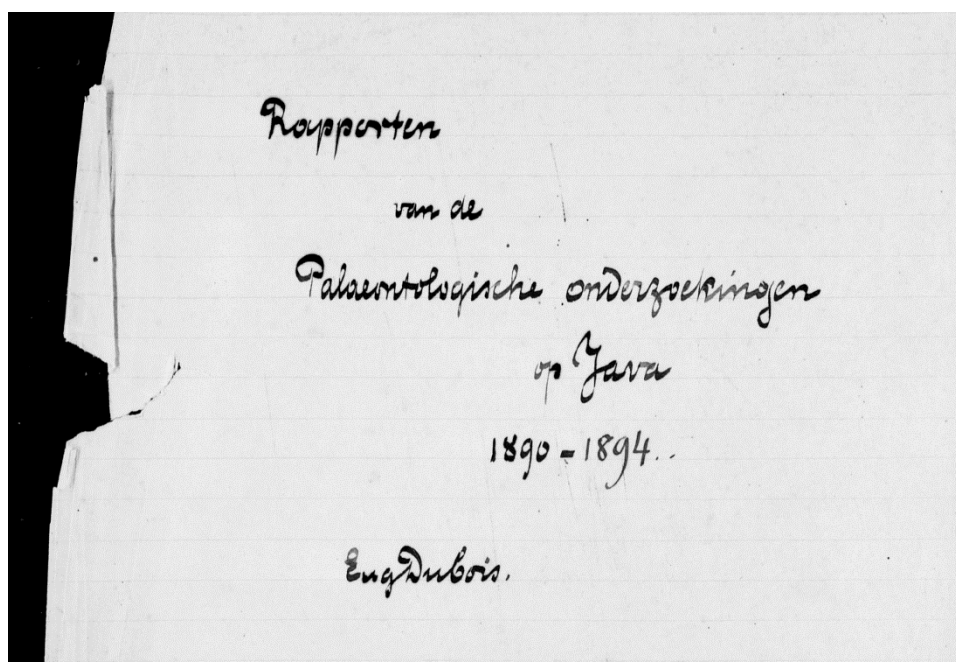 Rapporten
van de
Palaeontologische onderzoekingen
op Java
1890 - 1894.
Eug Dubois.